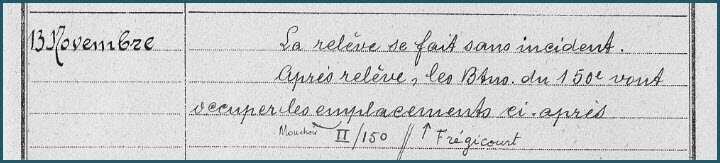 13 Novembre
La relève se fait sans incident.
Après relève, les Btns. du 150e vont
occuper les emplacements ci-après
Mouchoir II/150 // ↑ Frégicourt